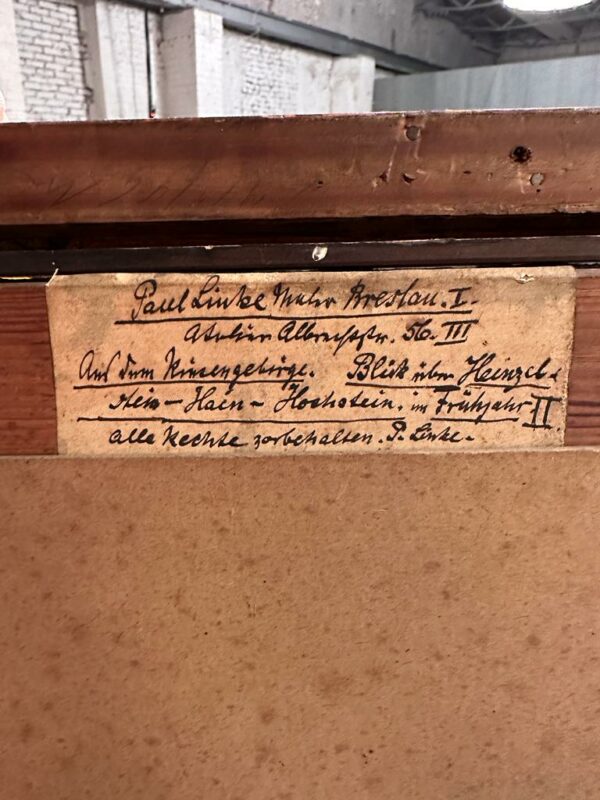 Paul Linke Maler Breslau. I.
Atelier Albrechtstr. 56. III
Aus dem Riesengebirge. Blick über Heinzel-
stein - Hain - Hochstein. im Frühjahr II.
alle Rechte vorbehalten. P. Linke.